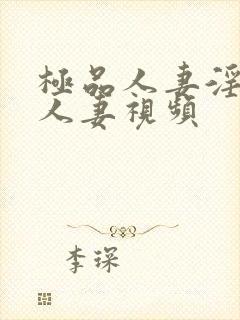 極品人妻淫
人妻視頻
李琛